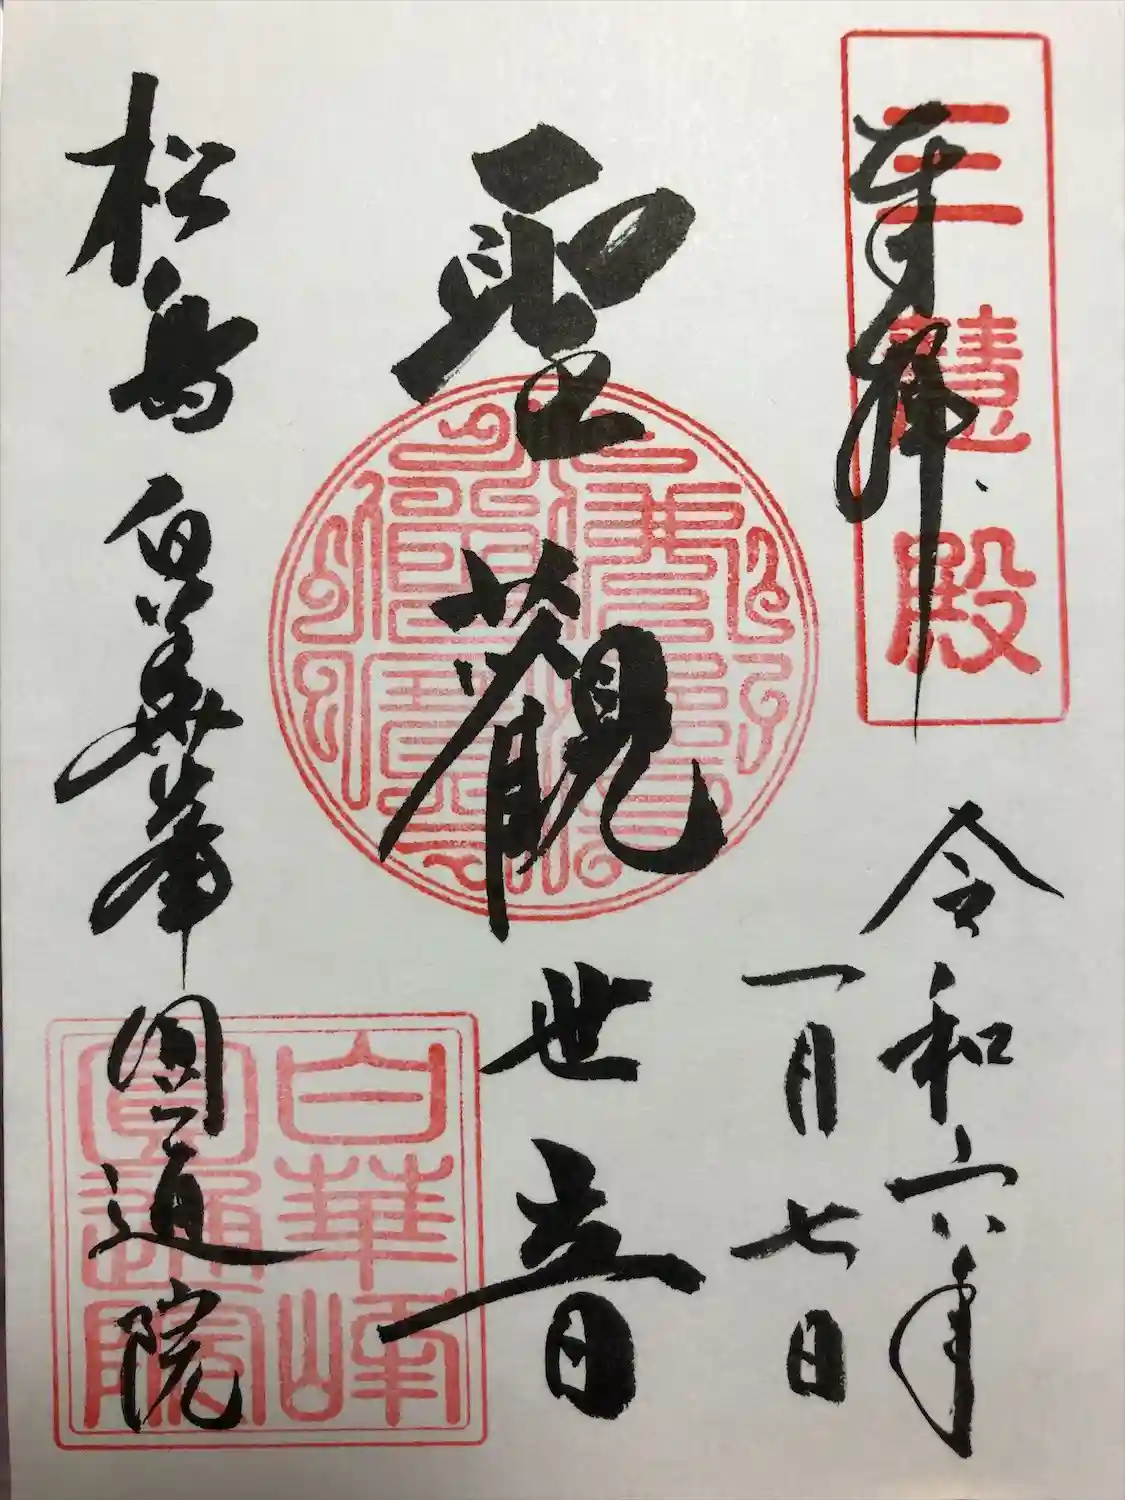 奉拝
三慧殿
令和六年
一月七日
聖觀世音
松島 白華峰 圓通院
白華峰
圓通院